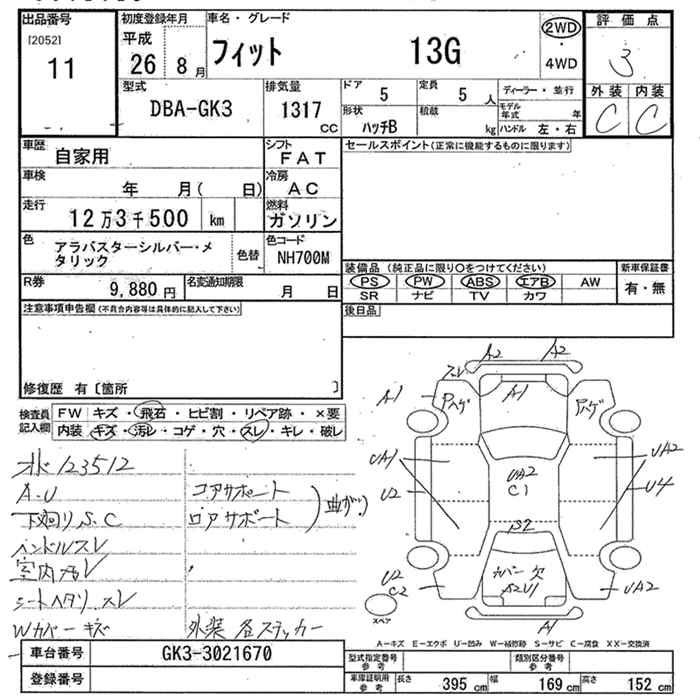 出品番号
[2052]
11
初度登録年月
平成
26 年 8 月
車名・グレード
フィット 13G
2WD
・
4WD
評価点
3
外装 内装
C C
型式
DBA-GK3
排気量
1317 cc
ドア 5
定員 5 人
ディーラー・並行
モデル年式 年
形状 ハッチB
積載 kg
ハンドル 左・右
車歴 自家用
シフト FAT
車検 年 月( 日)
冷房 AC
走行 12万3千500 km
燃料 ガソリン
色 アラバスターシルバー・メタリック
色替
色コード NH700M
R券 9,880 円
名変通知期限 月 日
セールスポイント(正常に機能するものに限ります)
装備品 (純正品に限り○をつけてください)
新車保証書
PS PW ABS エアB AW
有・無
SR ナビ TV カワ
後日品
注意事項申告欄(不具合内容等は具体的に記入して下さい)
修復歴 有〔箇所 〕
検査員記入欄
FW キズ・飛石・ヒビ割・リペア跡・×要
内装 キズ・汚レ・コゲ・穴・スレ・キレ・破レ
オド123512
A.U
下廻りS.C
ハンドルスレ
室内汚レ
シートヘタリ.スレ
Wカバーキズ
コアサポート
ロアサポート
曲がり
外装 各ステッカー
スレ A2 A2
A1 A1
Pスゲ Pスゲ
UA1 UA2
UA2
C1
U2 U4
S2
U2
C2
カバー欠
S2U1
UA2
A1
スペア
A-キズ E-エクボ U-凹み W-補修跡 S-サビ C-腐食 XX-交換済
車台番号 GK3-3021670
登録番号
型式指定番号参考
類別区分番号参考
車庫証明用参考 長さ 395 cm 幅 169 cm 高さ 152 cm